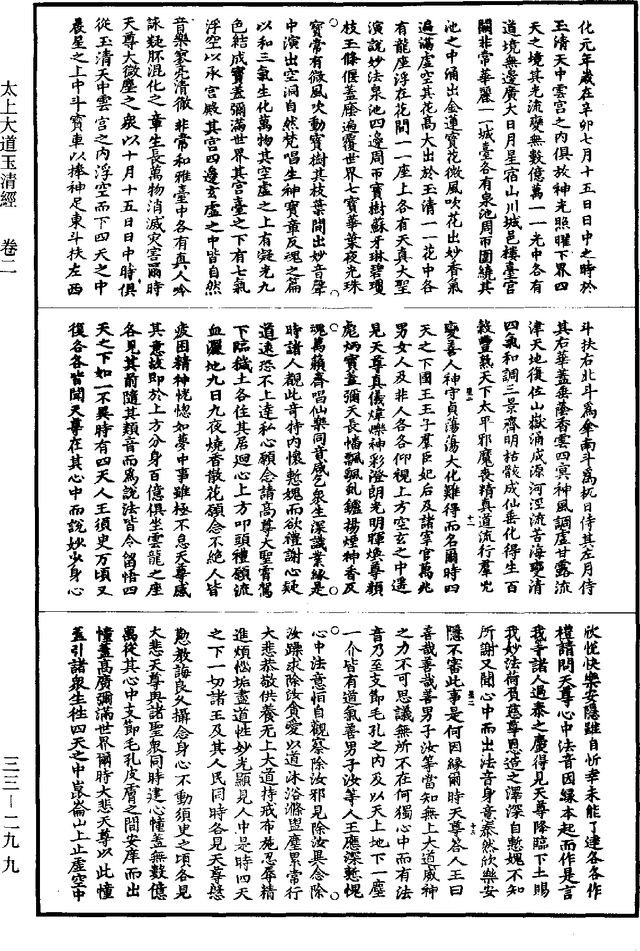 化元年歲在辛卯七月十五日日中之時於
玉清天中雲宮之內俱放神光照曜下界四
天之境其光流變無數億萬一一光中各有
道境無邊廣大日月星宿山川城邑樓臺宮
闕非常華麗一一城臺各有泉池周帀圍繞其
池之中涌出金蓮寶花微風吹花出妙香氣
遍滿虛空其花高大出於玉清一一花中各
有龍座浮在花間一一座上各有天真大聖
演說妙法泉池四邊周帀寶樹蘇牙琳碧瓊
枝玉條偃蓋蔭遍覆世界七寶華葉夜光珠
實常有微風吹動寶樹其枝葉間出妙音聲
中演出空洞自然梵唱生神寶章反魂之篇
以和三氣生化萬物其空虛之上有凝光九
色結成寶蓋彌滿世界其宮臺之下有七氣
浮空以承宮殿其宮四邊玄虛之中皆自然
音樂寥亮清徹非常和雅臺中各有真人吟
詠歎胚混化之章生長萬物消滅灾害爾時
天尊大微塵之衆以十月十五日日中時俱
從玉清天中雲宮之內浮空而下四天之中
晨星之上中斗寶車以捧神足東斗扶左西
斗扶右北斗為傘南斗為扆日侍其左月侍
其右華蓋垂蔭香雲四冥神風調虛甘露流
津天地復位山嶽涌成源河涇流苦海變清
四氣和調三景齊明枯骸成仙垂化得生百
穀豐熟天下太平邪魔喪精真道流行羣兇
變喜人神守貞蕩蕩大化難得而名爾時四
天之下國王王子羣臣妃后及諸宰官萬兆
男女人及非人各各仰視上方空玄之中遙
見天尊真儀煒曄神彩澄朗光明暉煥尊顏
彪炳寶蓋彌天長幡飄飄亂鑪揚煙神香反
魂萬籟齊唱仙樂同音咸乞衆生深識業緣是
時諸人觀此奇特內懷慙愧而欲禮謝心疑
道遠恐不上達私心願念請高尊大聖霄駕
下臨穢土各住其居迴心上方叩頭禮願流
血灑地九日九夜燒香散花願念不絕人皆
疲困精神恍惚如夢中事雖極不息天尊感
其意故即於上方分身百億俱坐雲龍之座
各見其前隨其類音而為說法皆令留悟四
天之下如一不異時有四天人王須㬰万頃又
復各各皆聞天尊在其心中而說妙少身心
欣悅快樂安隱雖自忻幸未能了達各各作
禮請問天尊心中法音因緣本起而作是言
我等諸人遇泰之慶得見天尊降臨下土賜
我妙法荷負慈尊恩造之澤深自慙愧不知
所謝又聞心中而出法音身意泰然欣樂安
隱不審此事是何因緣爾時天尊答人王曰
善哉善哉善男子汝等當知無上大道威神
之力不可思議無所不在何獨心中而有法
音乃至支節毛孔之內及以天上地下一塵
一介皆有道氣善男子汝等人王應深慙愧
心中法意怕自觀察除汝邪見除汝異念除
汝躁求除汝貪愛以道沐浴滌盥塵累常行
大悲恭敬供養无上大道持戒布施忍辱精
進煩惱垢盡道性妙光顯見人中是時四天
之下一切諸王及其人民同時各見天尊慈
懃教誨良久攝念身心不動須史之頃各見
大悲天尊與諸聖衆同時建心幢蓋無數億
萬從其心中支節毛孔皮膚之間安庠而出
幢蓋高廣彌滿世界爾時大悲天尊以此幢
蓋引諸衆生往四天之中崑崙山上止虛空中
太上大道玉清經 卷二
三三-二九九